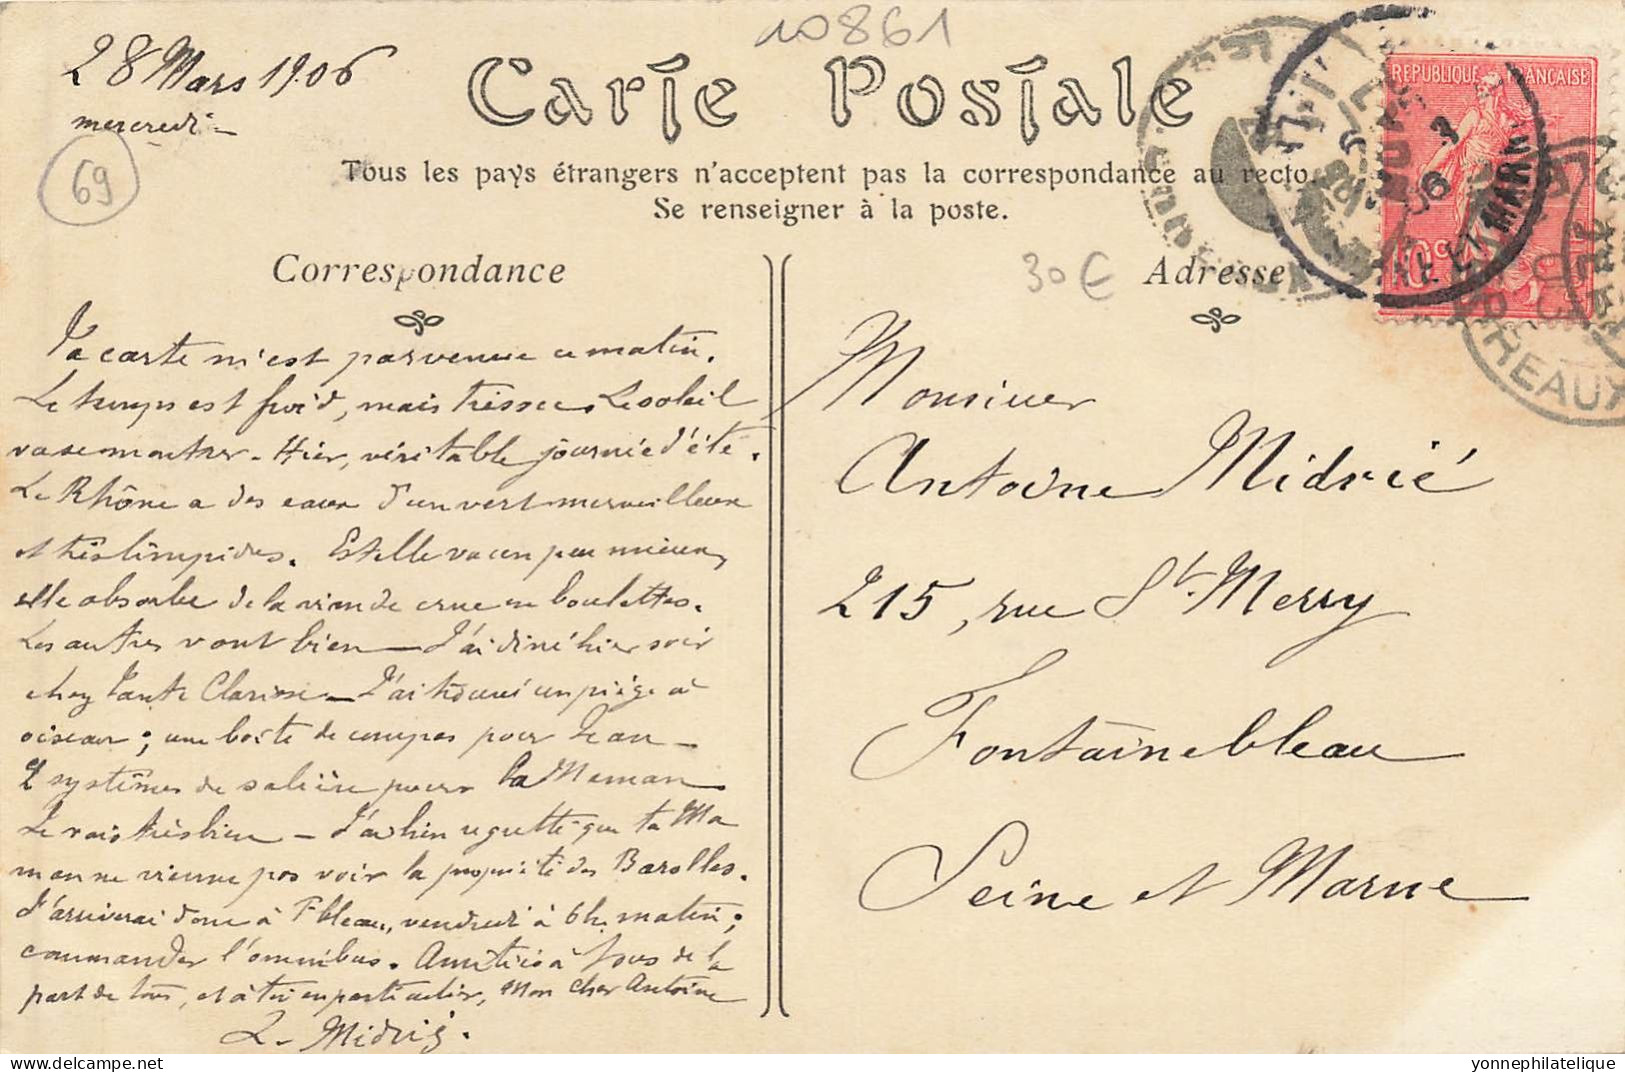 10861
28 Mars 1906
mercredi -
69
Carte Postale
Tous les pays étrangers n'acceptent pas la correspondance au recto.
Se renseigner à la poste.
REPUBLIQUE FRANÇAISE
10c
Correspondance
30 €
Adresse
Ta carte m'est parvenue ce matin.
Le temps est froid, mais très sec. Le soleil
va se montrer - Hier, véritable journée d'été.
Le Rhône a des eaux d'un vert merveilleux
et très limpides. Estelle va un peu mieux,
elle absorbe de la viande crue en boulettes.
Les autres vont bien - J'ai diné hier soir
chez Tante Clarisse - J'ai trouvé un piège à
oiseau; une boite de compas pour Jean -
2 systèmes de salière pour la Maman
Je vais très bien - J'ai bien regretté que ta Ma
man ne vienne pas voir la propriété des Barolles.
J'arriverai donc à F-bleau, vendredi à 6h. matin;
commander l'omnibus. Amitiés à tous de la
part de tous, et à toi en particulier, mon cher Antoine
L. Midrié.
Monsieur
Antoine Midrié
215, rue St. Merry
Fontainebleau
Seine et Marne
yonnephilatelique